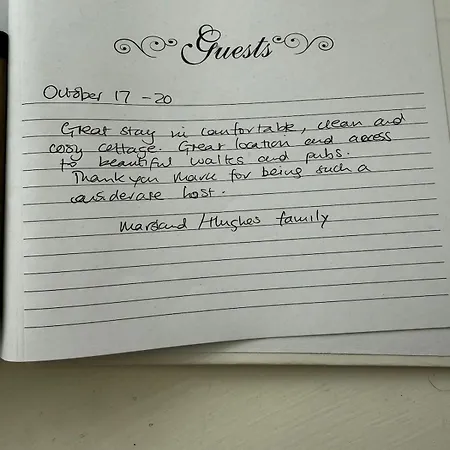 Guests
October 17 - 20
Great stay in comfortable, clean and
cosy cottage. Great location and access
to beautiful walks and pubs.
Thank you Mark for being such a
considerate host.
/Hughes family